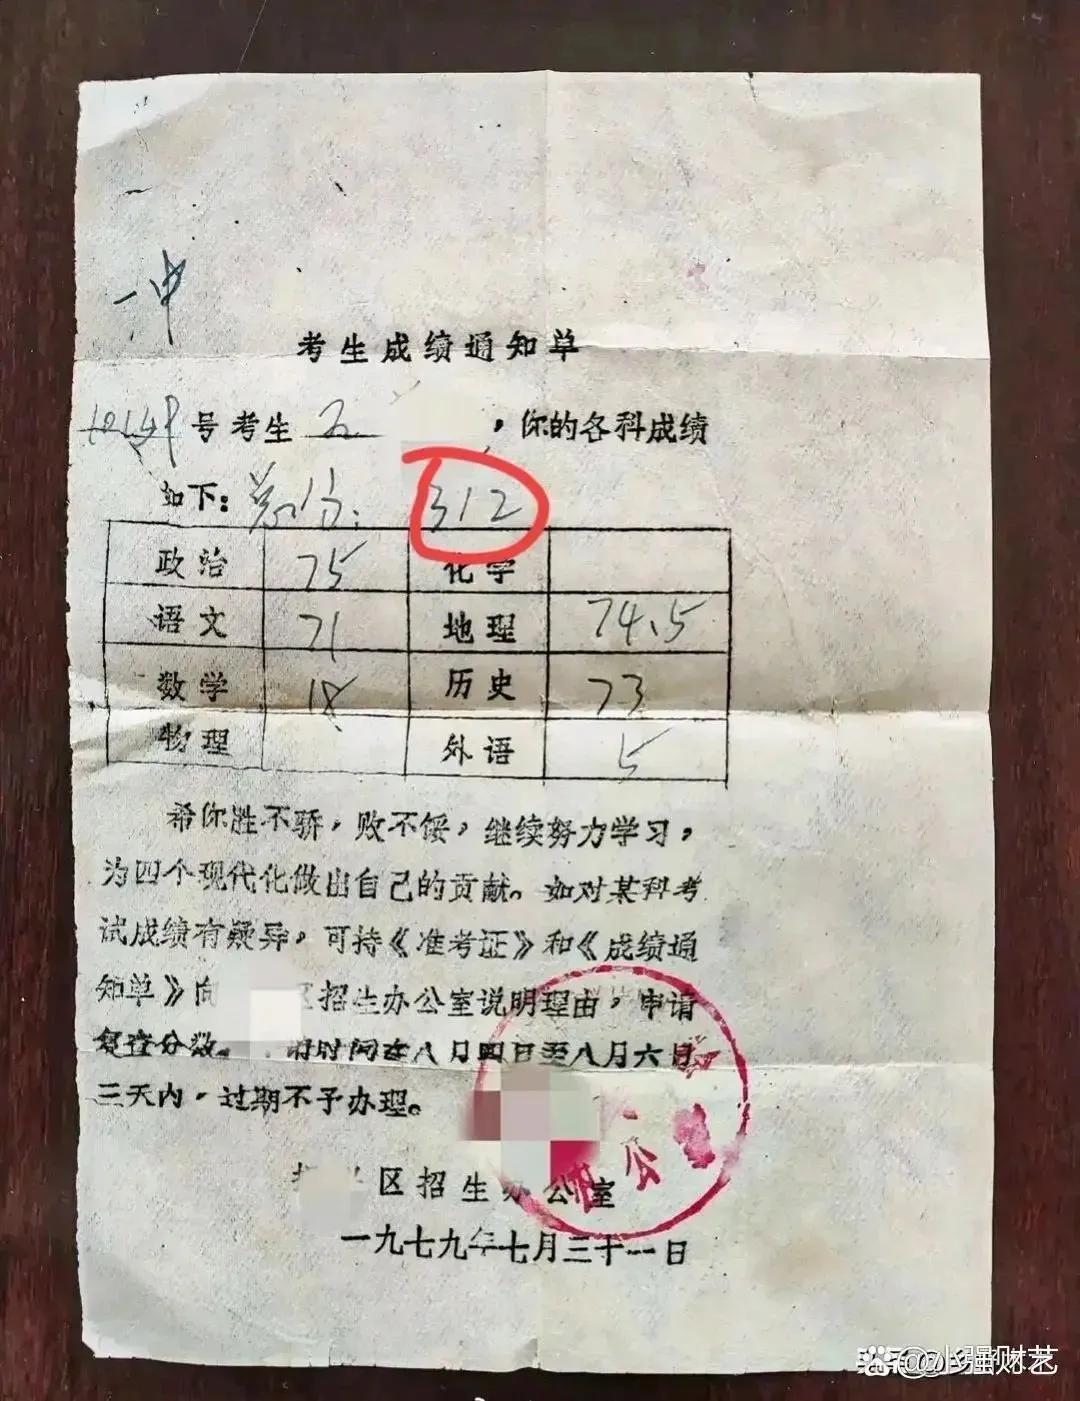 一中
考生成绩通知单
号考生 ，你的各科成绩
如下：总分：312
政治 75 化学
语文 71 地理 74.5
数学 18 历史 73
物理 外语 5
希你胜不骄，败不馁，继续努力学习，
为四个现代化做出自己的贡献。如对某科考
试成绩有疑异，可持《准考证》和《成绩通
知单》向 区招生办公室说明理由，申请
复查分数。 时间在八月四日至八月六日
三天内，过期不予办理。
区招生办公室
一九七九年七月三十一日
@小强财艺